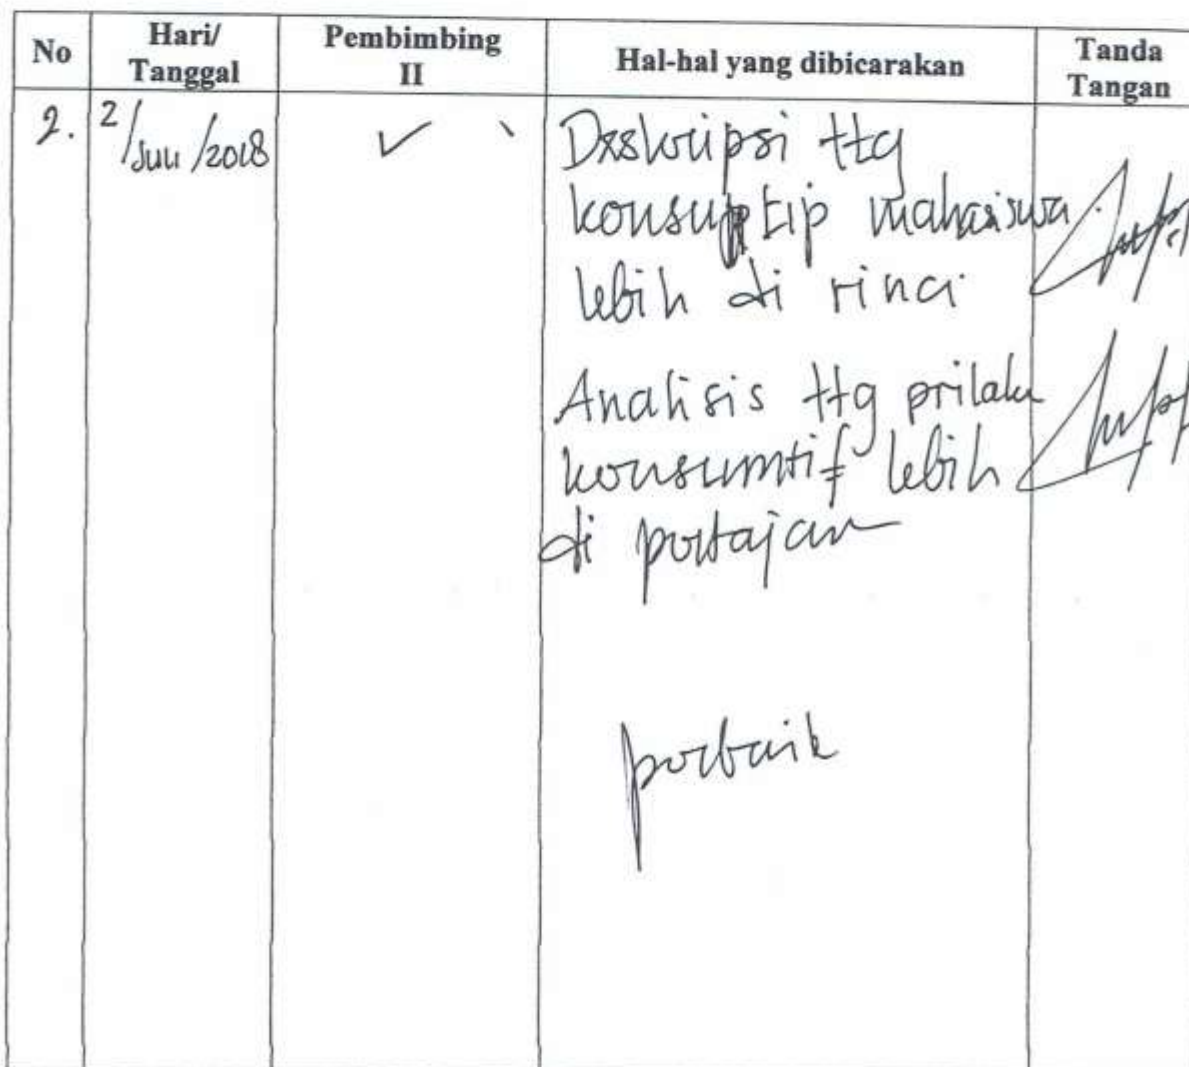 No Hari/ Tanggal Pembimbing II Hal-hal yang dibicarakan Tanda Tangan
2. 2/Juli/2018 ✓ Deskripsi ttg
konsumptip mahasiswa
lebih di rinci
Analisis ttg prilaku
konsumtif lebih
di pertajam
perbaik